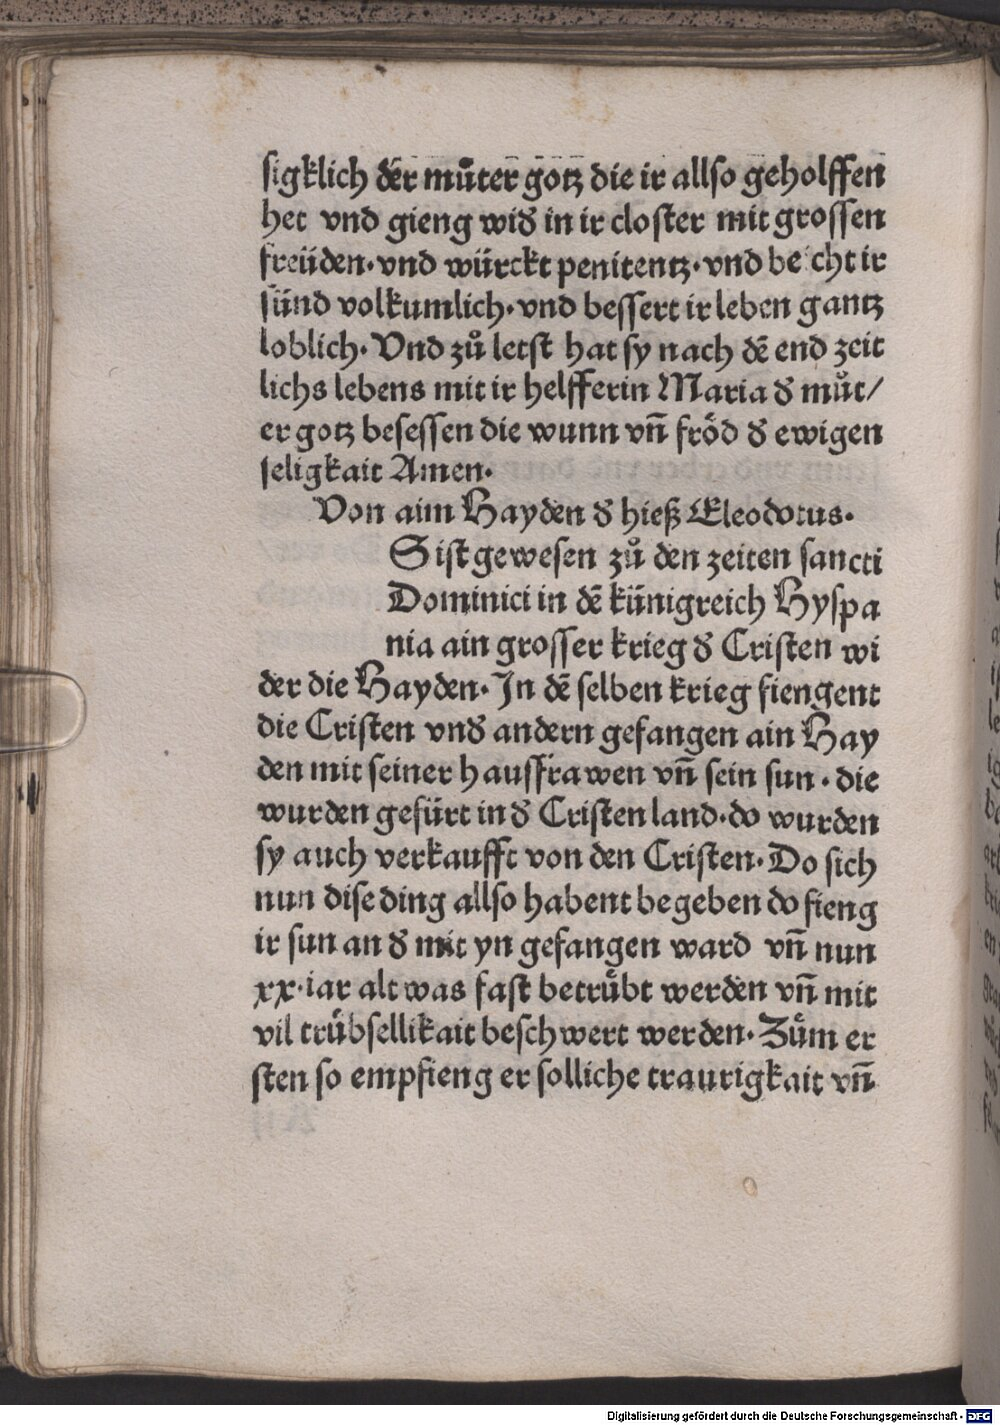 sigklich der můter gotz die ir allso geholffen
het vnd gieng wiď in ir closter mit grossen
freüden·vnd würckt penitentz·vnd beicht ir
sünd volkumlich·vnd bessert ir leben gantz
loblich·Vnd zů letst hat sy nach dē end zeit
lichs lebens mit ir helfferin Maria ď můt/
er gotz besessen die wunn vn̄ fröd ď ewigen
seligkait Amen·
Von aim Hayden ď hieß Eleodorus·
S ist gewesen zů den zeiten sancti
Dominici in dē künigreich Hyspa
nia ain grosser krieg ď Cristen wi
der die Hayden·In dē selben krieg fiengent
die Cristen vnď andern gefangen ain Hay
den mit seiner haussfrawen vn̄ sein sun·die
wurden gefürt in ď Cristen land·do wurden
sy auch verkaufft von den Cristen·Do sich
nun dise ding allso habent begeben do fieng
ir sun an ď mit yn gefangen ward vn̄ nun
xx·iar alt was fast betrübt werden vn̄ mit
vil trübsellikait beschwert werden·Zům er
sten so empfieng er solliche traurigkait vn̄
Digitalisierung gefördert durch die Deutsche Forschungsgemeinschaft - DFG